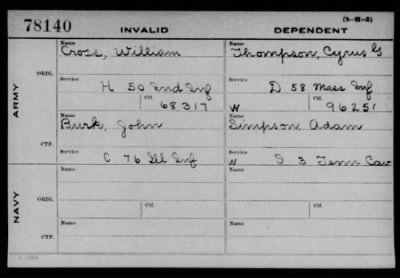 (3-H-3)
78140 INVALID DEPENDENT
Name Name
Cross, William Thompson, Cyrus G
ORIG.
Service Service
H 50 Ind Inf D 58 Mass Inf
Ctf. Ctf.
68317 W 96251
ARMY
Name Name
Burk, John Simpson Adam
CTF.
Service Service
C 76 Ill Inf W S 3 Tenn Cav
Name Name
ORIG.
Ctf. Ctf.
NAVY
Name Name
CTF.